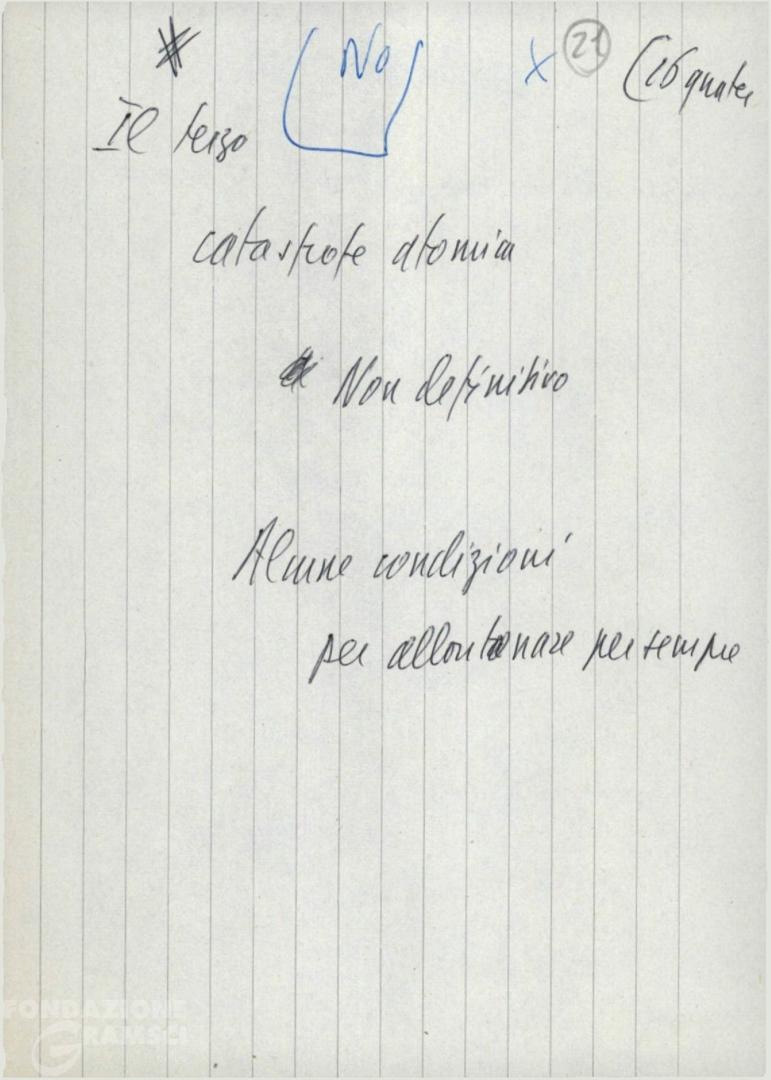 No x 21 (16 quater
Il terzo
catastrofe atomica
Non definitivo
Alcune condizioni
per allontanare per sempre
FONDAZIONE
GRAMSCI